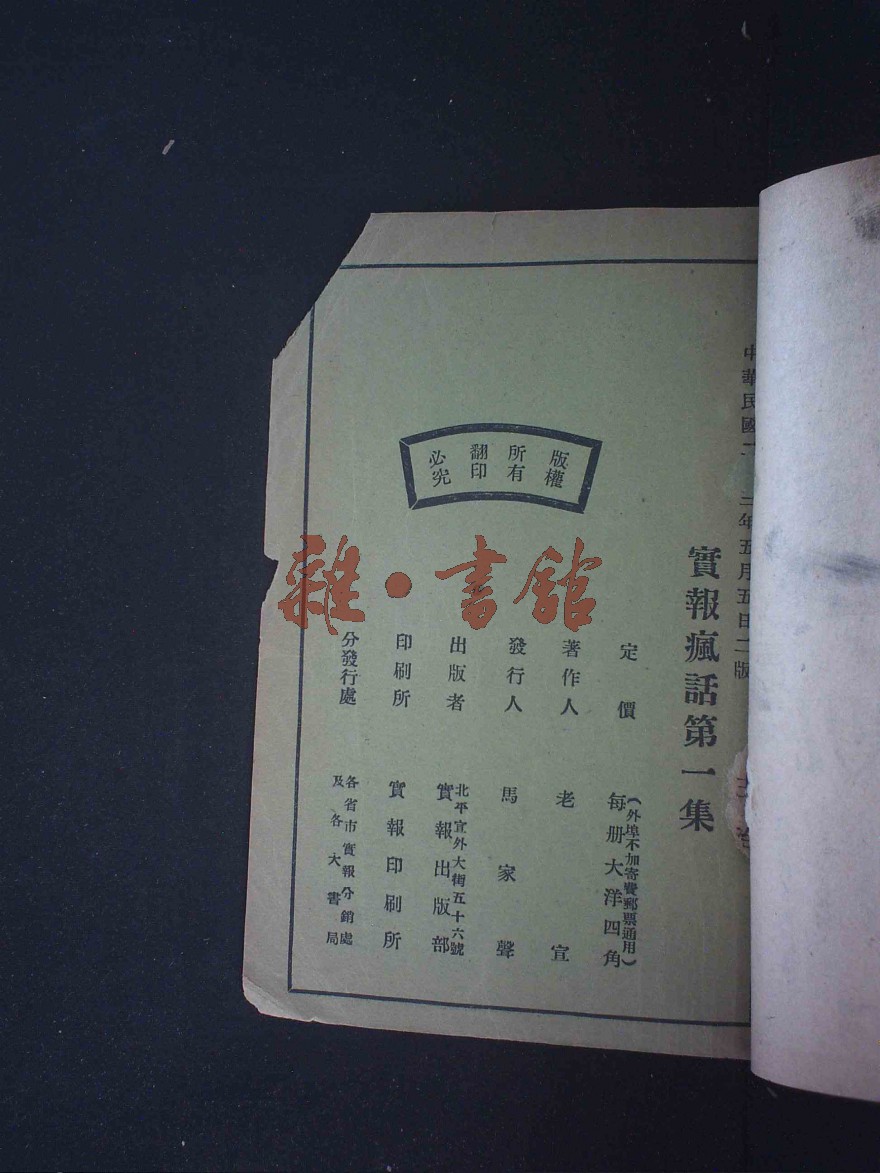 中華民國二 三年五月五日二版
實報瘋話第一集
定價 每册大洋四角
(外埠不加寄費郵票通用)
著作人 老宣
發行人 馬家聲
出版者 實報出版部
北平宣外大街五十六號
印刷所 實報印刷所
分發行處 各省市實報分銷處
及各大書局
版權
所有
翻印
必究
雜·書館